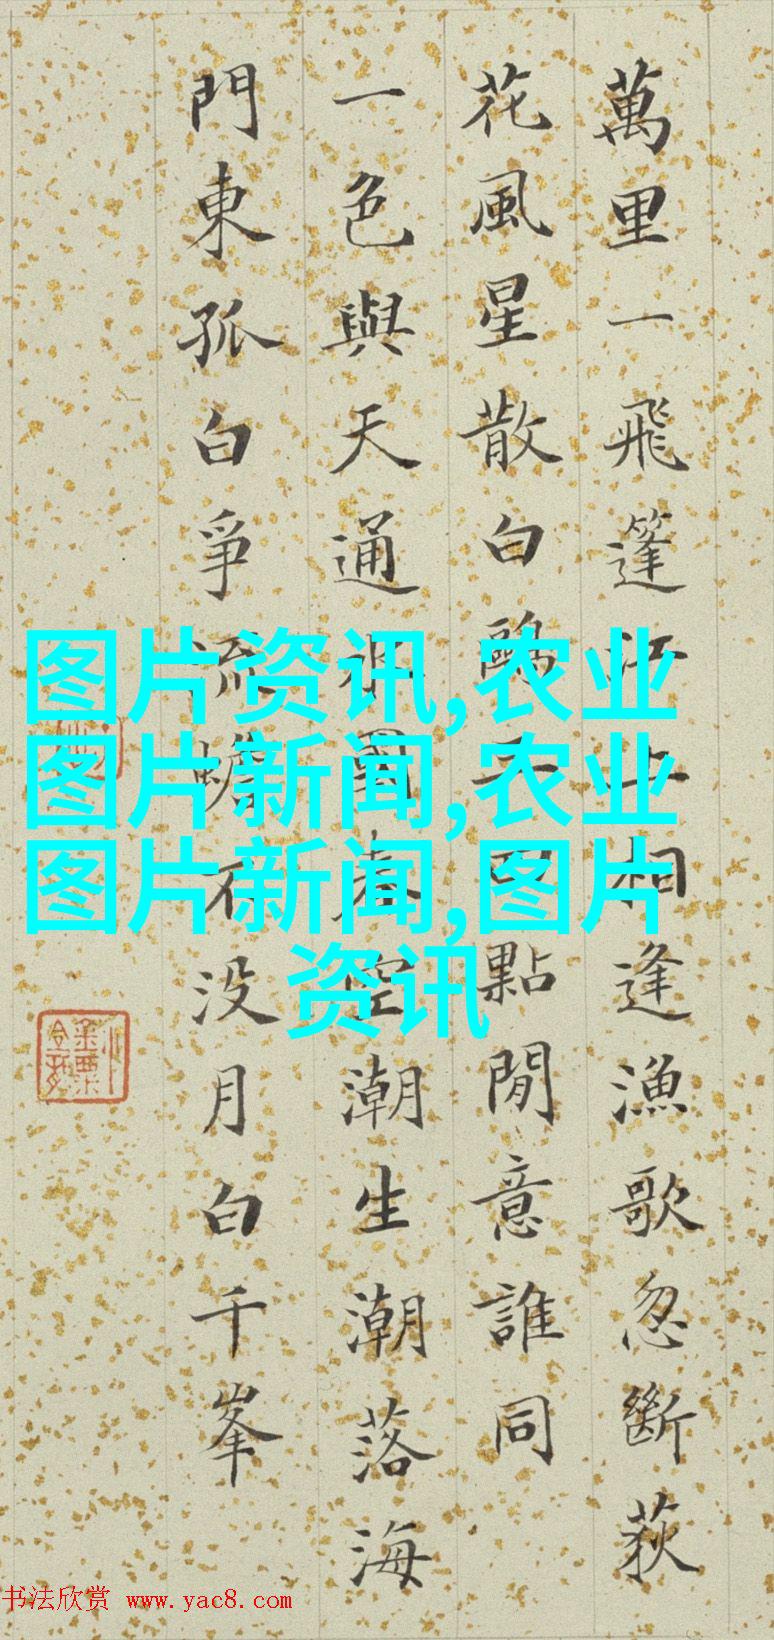 萬里一飛篷江上相逢漁歌忽斷荻
花風星散白鷗點閒意誰同
一色與天通春空潮生潮落海
門東孤白爭流蟾不没月白千峯
图片资讯,农业
图片新闻,农业
图片新闻,图片
资讯
书法欣赏 www.yac8.com